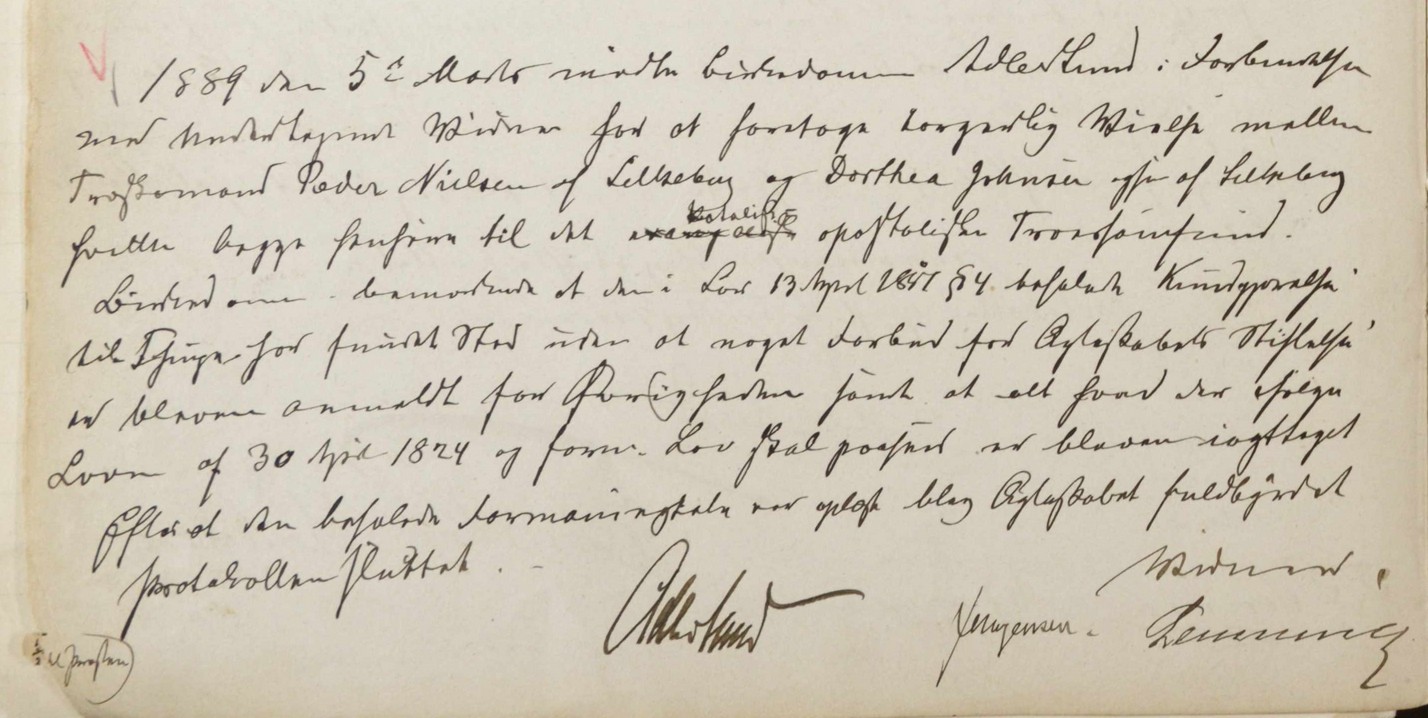 1889 den 5t Marts mødte Birkedommer Adlersund i Forbindelse
med undertegnede Vidner for at foretage borgerlig Vielse mellem
Træskomand Peder Nielsen af Silkeborg og Dorthea Johnsen ogsaa af Silkeborg
hvilke begge henhøre til det katolisk apostoliske Troessamfund.
Birkedommeren bemærkede at den i Lov 13 April 1851 § 4 befalede Kundgjørelse
til Thinge har fundet Sted uden at noget Forbud for Ægteskabets Stiftelse
er bleven anmeldt for Øvrigheden samt at alt hvad der ifølge
Loven af 30 April 1824 og Lov skal paasees er bleven iagttaget
Efter at den befalede Formaningstale var oplæst blev Ægteskabet fuldbyrdet
Protokollen sluttet.
Vidner.
Adlersund Jørgensen. Lemming
Præsten